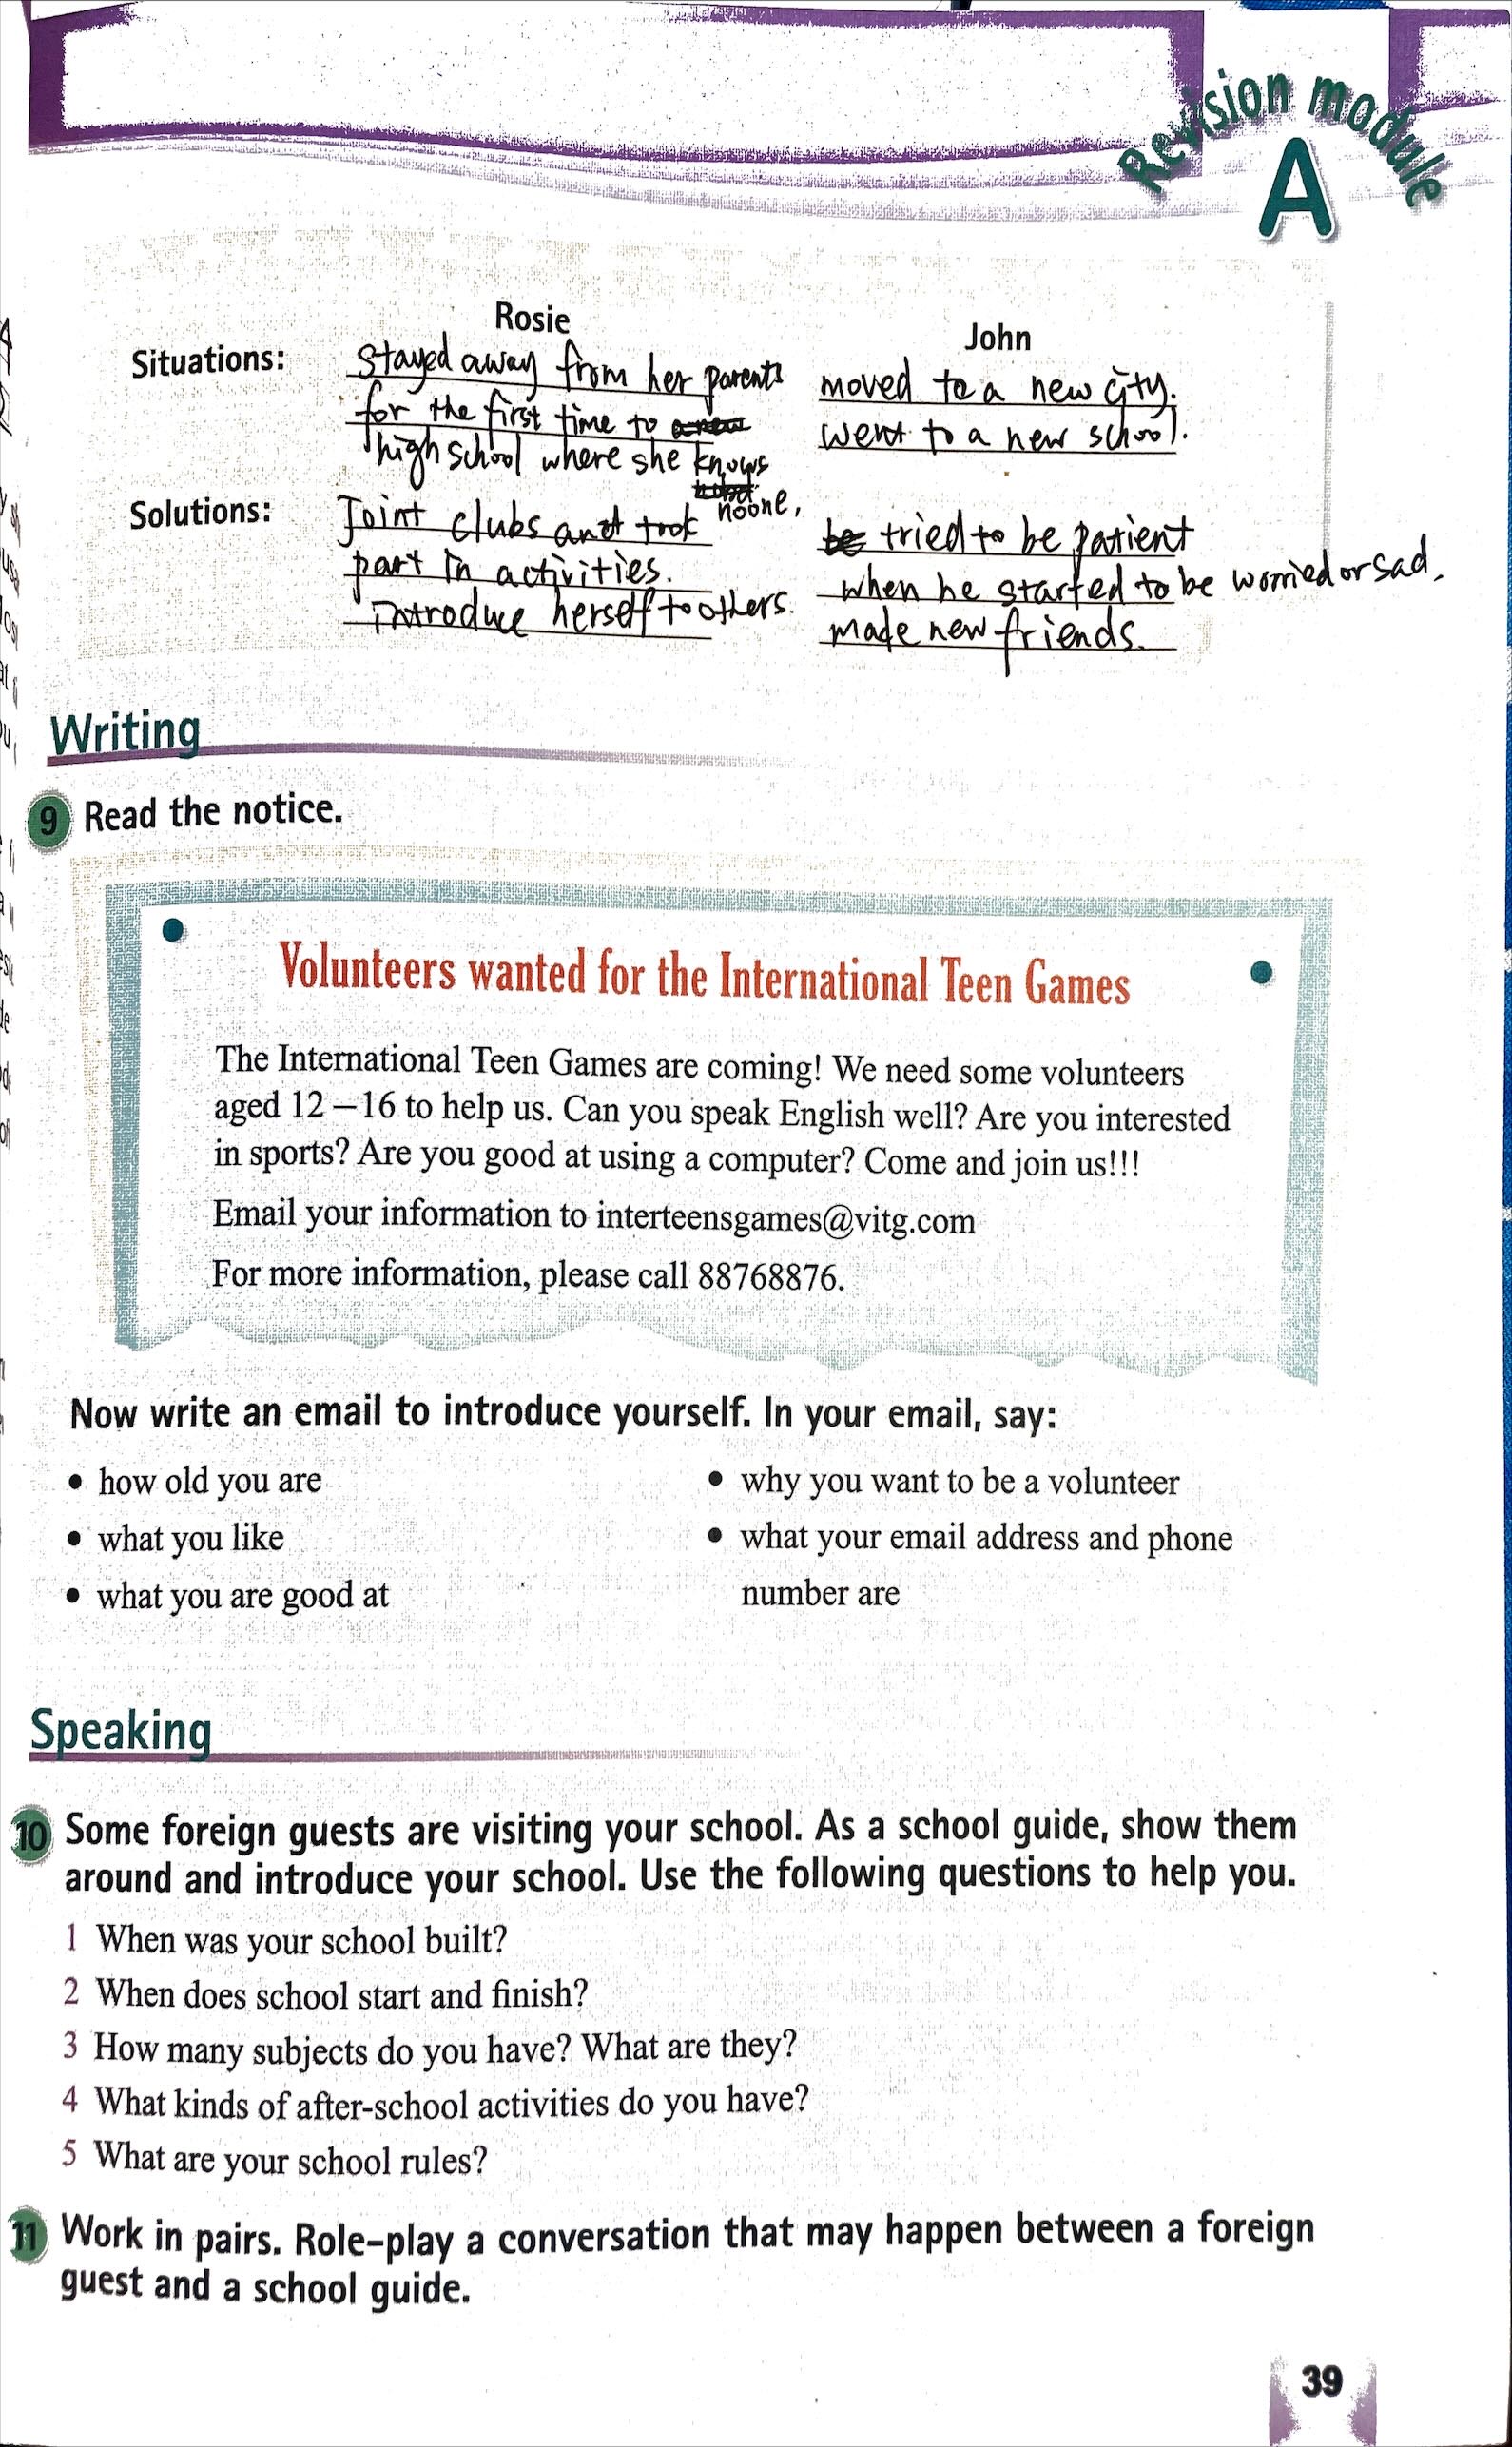 Revision module
A
Rosie
John
Situations:
Stayed away from her parents
for the first time to
high school where she knows
noone,
moved to a new city.
went to a new school.
Solutions:
Joint clubs and took
part in activities.
introduce herself to others.
tried to be patient
when he started to be worried or sad.
made new friends.
Writing
9 Read the notice.
Volunteers wanted for the International Teen Games
The International Teen Games are coming! We need some volunteers
aged 12 – 16 to help us. Can you speak English well? Are you interested
in sports? Are you good at using a computer? Come and join us!!!
Email your information to interteensgames@vitg.com
For more information, please call 88768876.
Now write an email to introduce yourself. In your email, say:
• how old you are
• what you like
• what you are good at
• why you want to be a volunteer
• what your email address and phone
number are
Speaking
10 Some foreign guests are visiting your school. As a school guide, show them
around and introduce your school. Use the following questions to help you.
1 When was your school built?
2 When does school start and finish?
3 How many subjects do you have? What are they?
4 What kinds of after-school activities do you have?
5 What are your school rules?
11 Work in pairs. Role-play a conversation that may happen between a foreign
guest and a school guide.
39